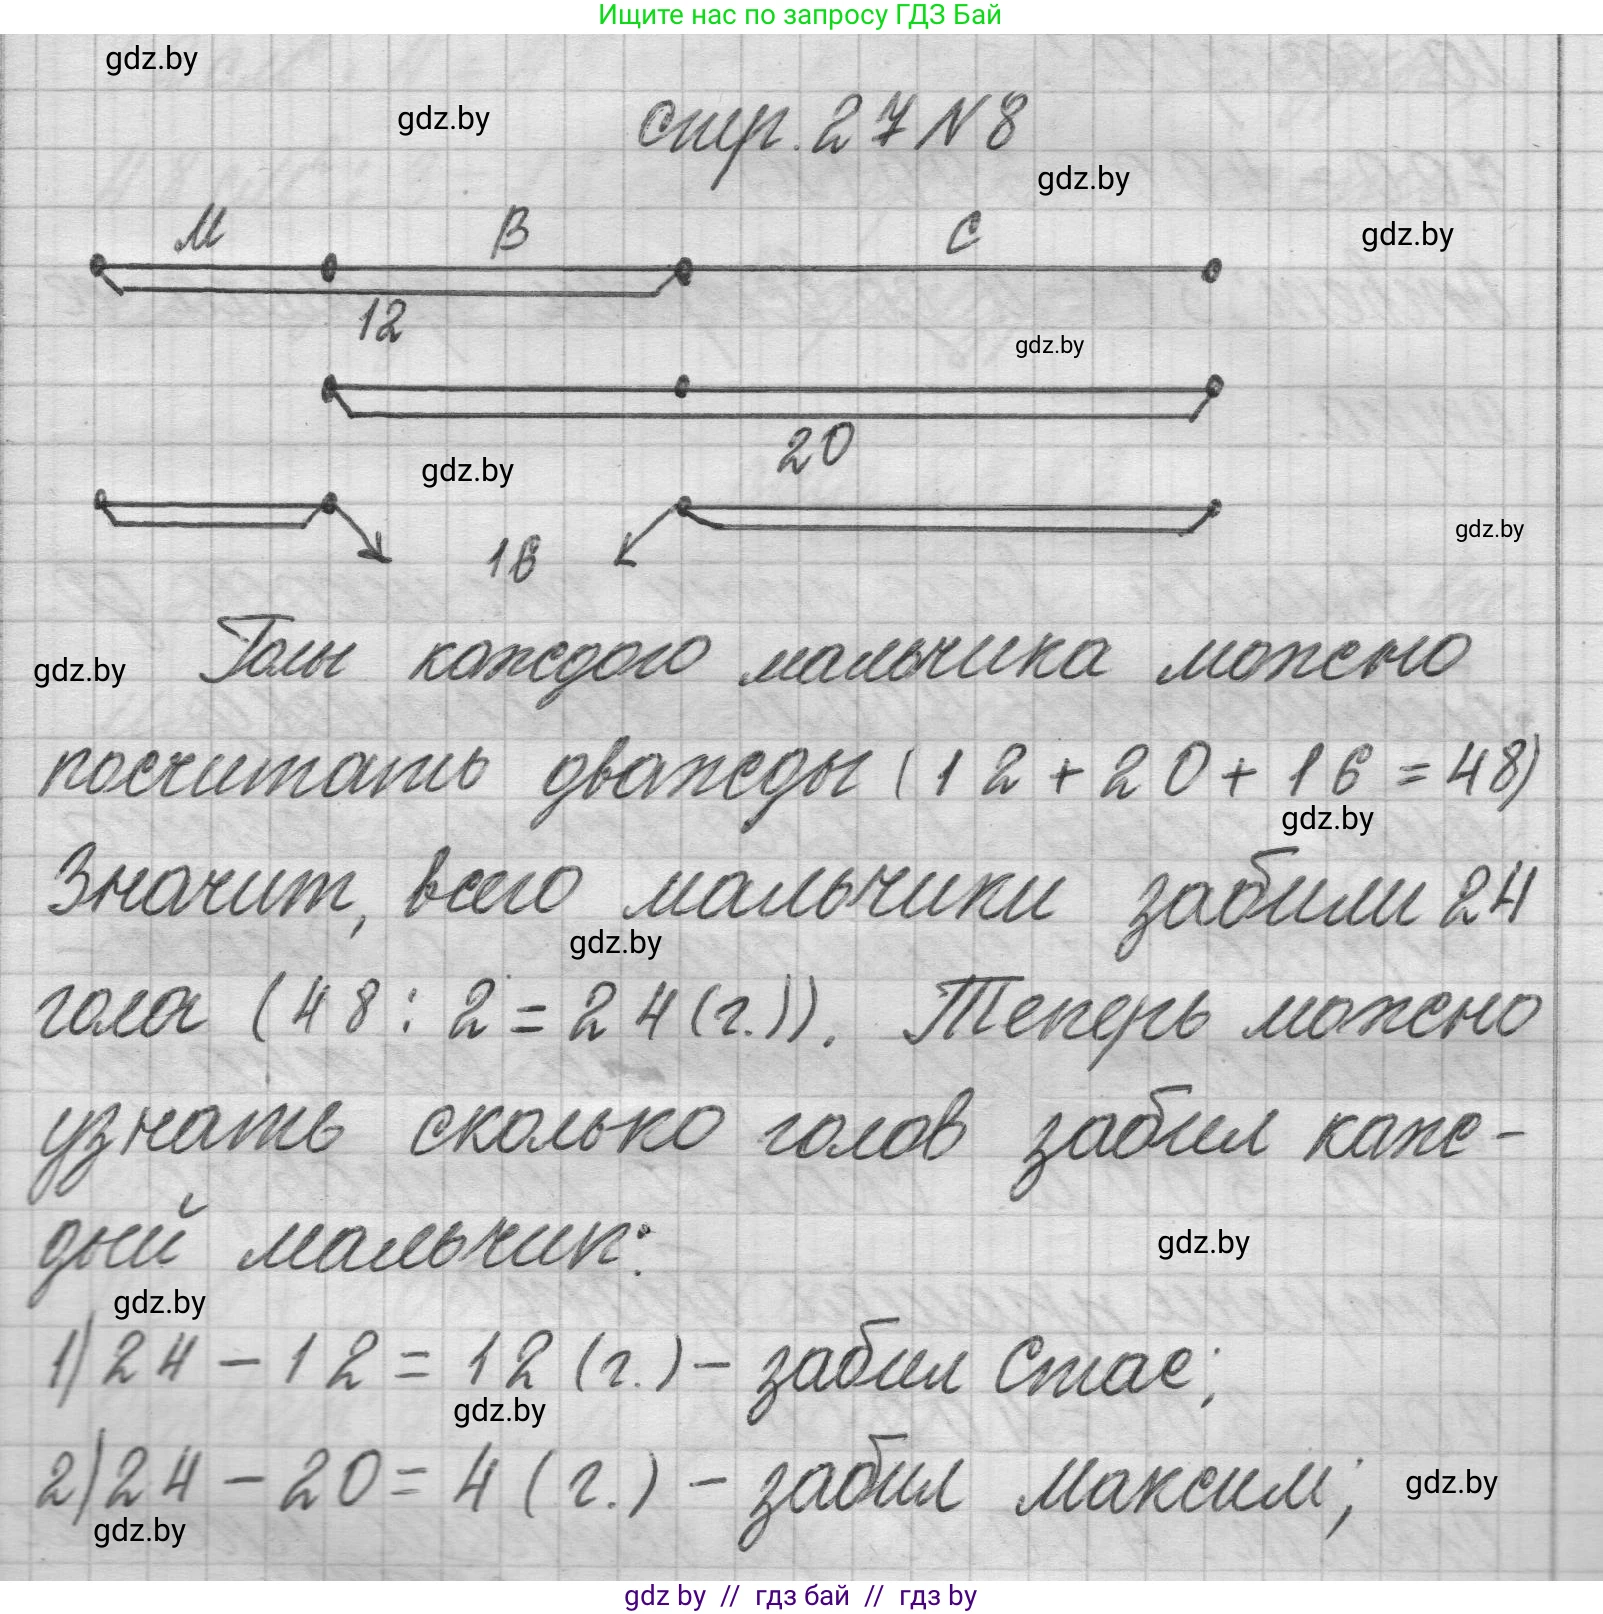 Ищите нас по запросу ГДЗ Бай
gdz.by
gdz.by
стр. 27 N 8
gdz.by
М В С
gdz.by
12
gdz.by
20
gdz.by
gdz.by
16
Голы каждого мальчика можно
gdz.by
посчитать дважды (12+20+16=48)
gdz.by
Значит, всего мальчики забили 24
gdz.by
гола (48:2=24(г.)). Теперь можно
узнать сколько голов забил каж-
дый мальчик:
gdz.by
gdz.by
1) 24-12=12 (г.) - забил Стас;
gdz.by
2) 24-20=4 (г.) - забил Максим;
gdz.by
gdz.by
gdz by // гдз бай // гдз by